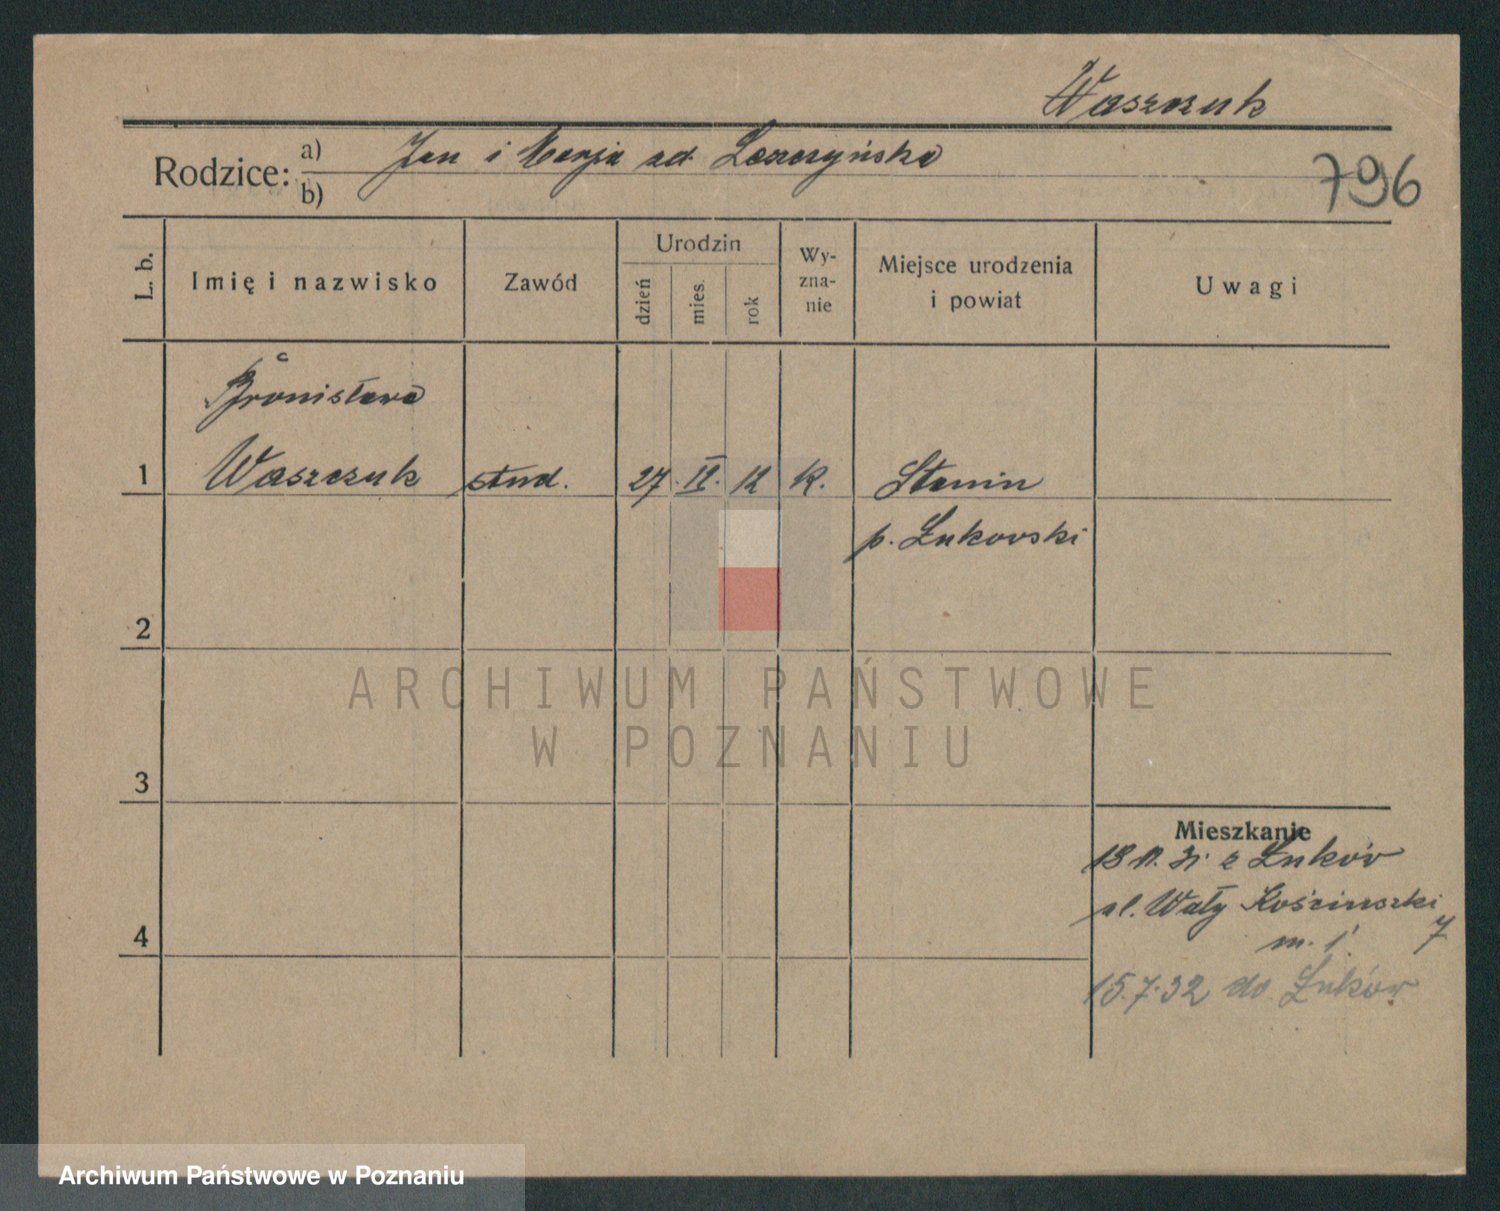 Waszczuk
Rodzice: a) Jan i Marja zd. Leszczyńska
b)
796
L. b. Imię i nazwisko Zawód Urodzin dzień mies. rok Wy-zna-nie Miejsce urodzenia i powiat Uwagi
Bronisława
1 Waszczuk stud. 27. II. 12 K. Stanin
p. Łukowski
2
3
Mieszkanie
z Łuków
ul. Wały Kościuszki
7
m. 1
4
15.7.32 do Łuków
ARCHIWUM PAŃSTWOWE
W POZNANIU
Archiwum Państwowe w Poznaniu